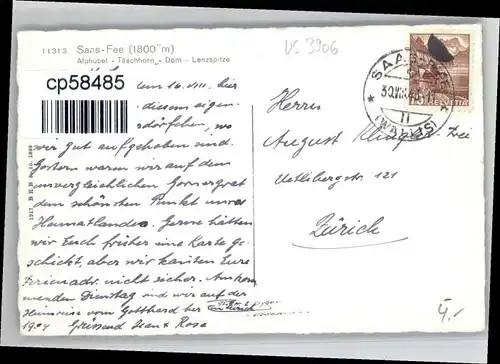 11313 Saas-Fee (1800 m)
Alphubel - Täschhorn - Dom - Lenzspitze
VS 3906
cp58485
SAAS
30.VII
(WALLIS)
HELVETIA
diesem eigen-
dörfchen, wo
wir gut aufgehoben sind.
Gestern waren wir auf dem
unvergleichlichen Gornergrat
dem schönsten Punkt unsres
Heimatlandes. Gerne hätten
wir Euch früher eine Karte ge-
schickt, aber wir kannten Eure
Ferienadr. nicht sicher. Am kom-
menden Dienstag sind wir auf der
Heimreise vom Gotthard her
Grüssend Jean & Rosa
Herrn
August
Uetlibergstr. 121
Zürich
4.-